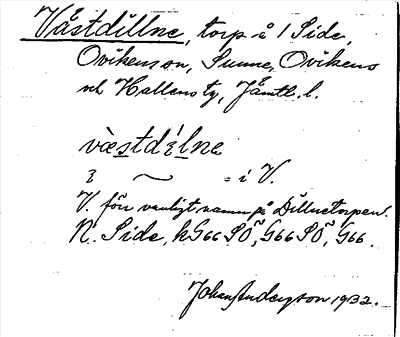 Västdillne, torp å 1 Side,
Ovikens sn, Sunne, Ovikens
och Hallens tg, Jämtl. l.
væstdílne
~ = i V.
V. förr vanligt namn på Dillnetorpen.
N. Side, h G66 SÖ, G66 SÖ, G66.
Johan Anderson 1932.